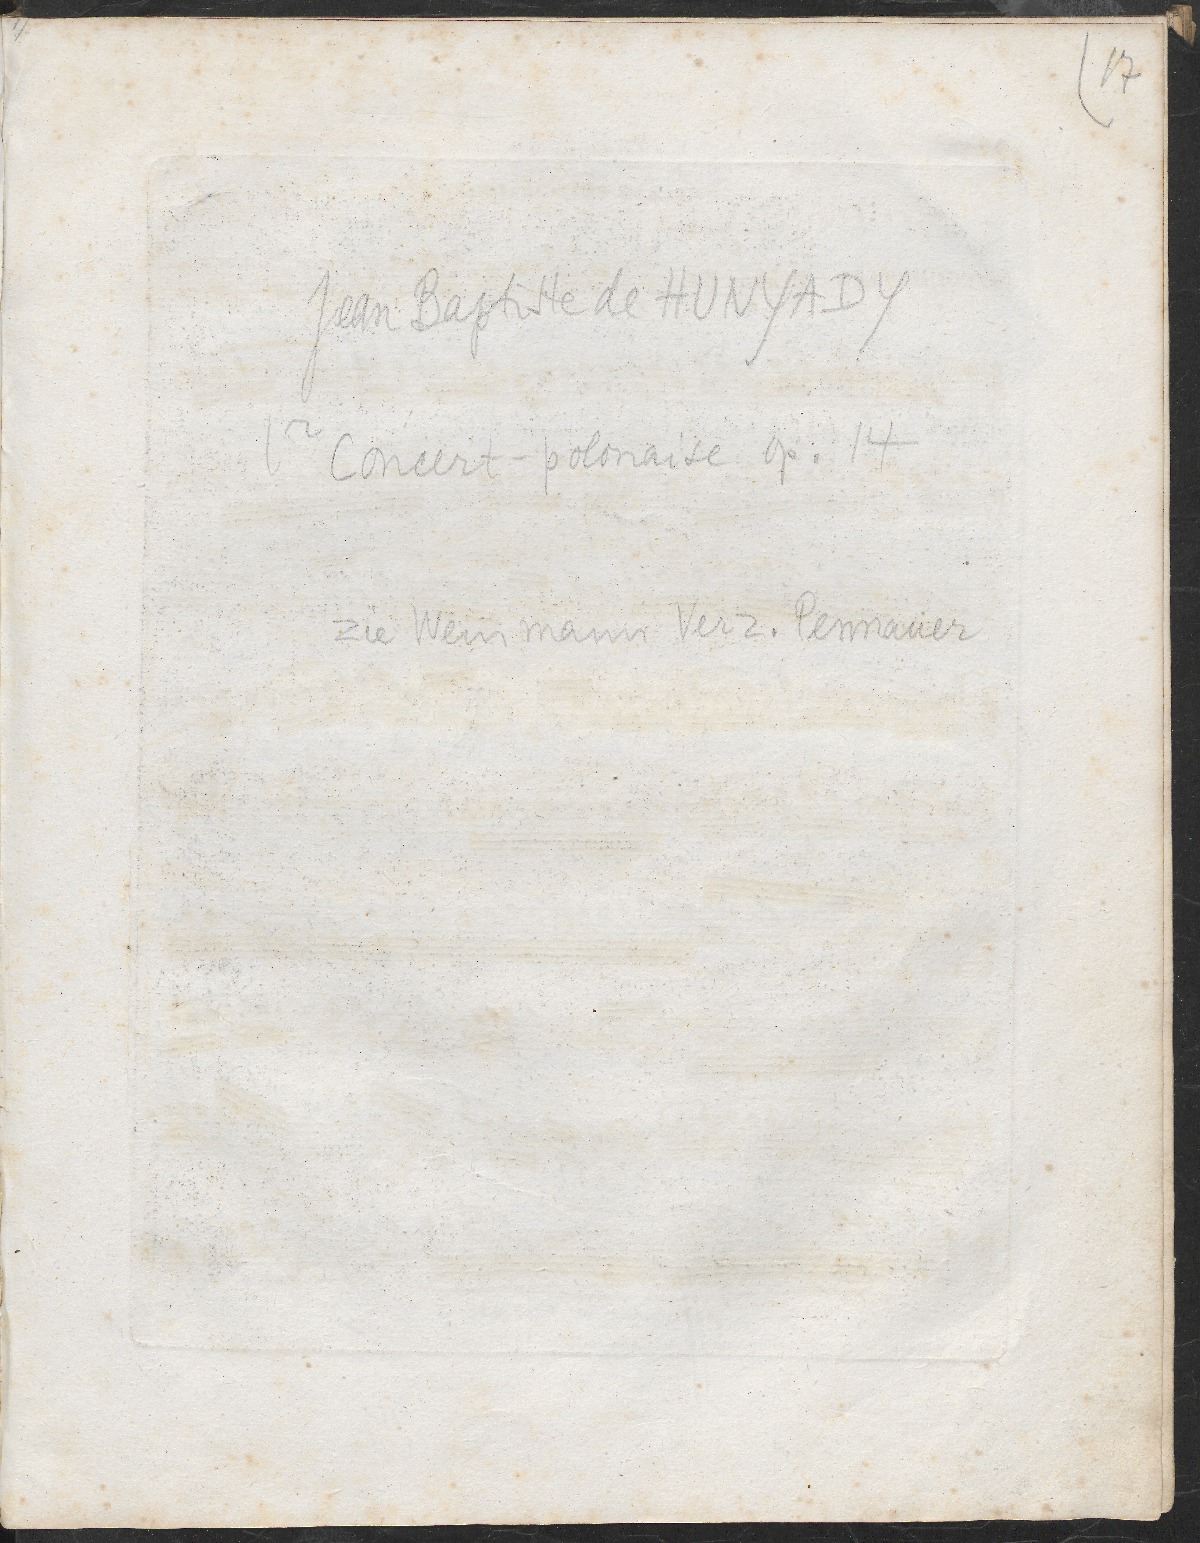 17
Jean Baptiste de HUNYADY
Concert-polonaise op. 14
zie Weinmann Verz. Pennauer